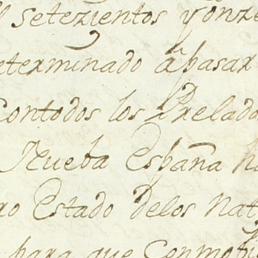 setezientos yonze
determinado âpasar
Contodos los Prelado
Nueba España
ro Estado delos Nat
para que Con